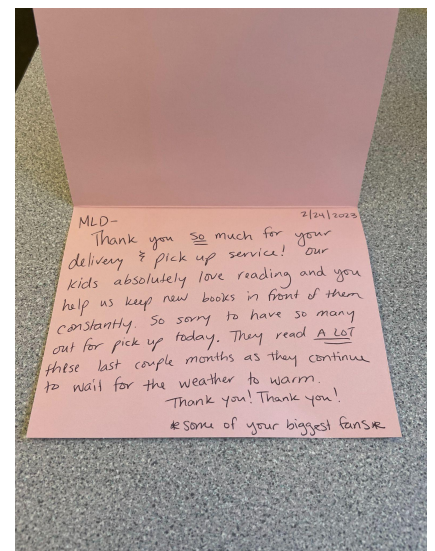 MLD- 2/24/2023
Thank you so much for your
delivery & pick up service! Our
kids absolutely love reading and you
help us keep new books in front of them
constantly. So sorry to have so many
out for pick up today. They read A LOT
these last couple months as they continue
to wait for the weather to warm.
Thank you! Thank you!
*some of your biggest fans*